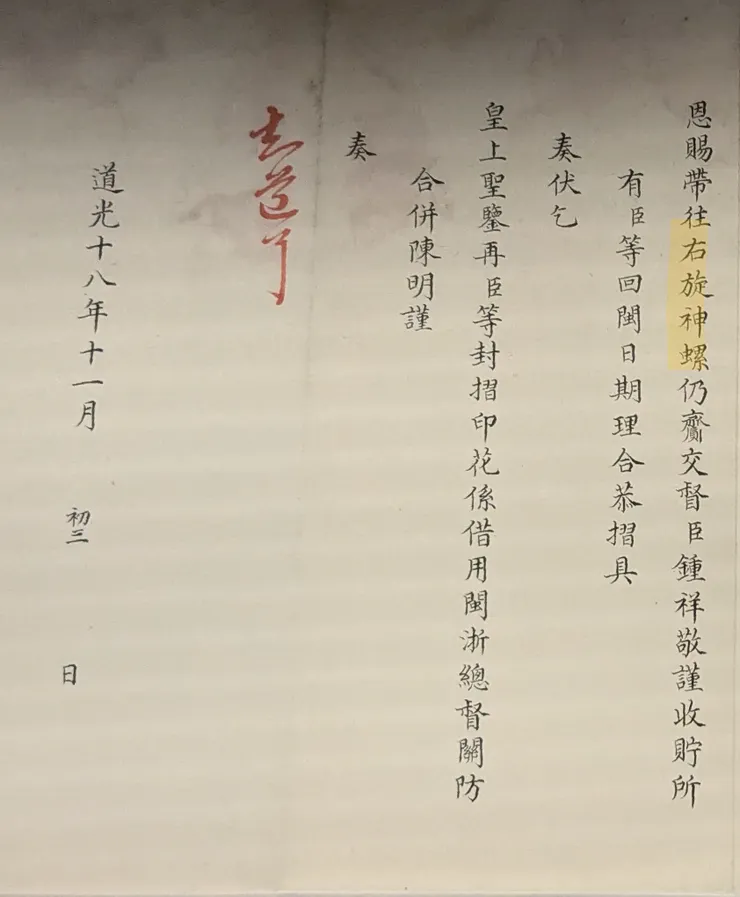 恩賜帶往右旋神螺仍齎交督臣鍾祥敬謹收貯所
有臣等回閩日期理合恭摺具
奏伏乞
皇上聖鑒再臣等封摺印花係借用閩浙總督關防
合併陳明謹
奏
知道了
道光十八年十一月 初三 日